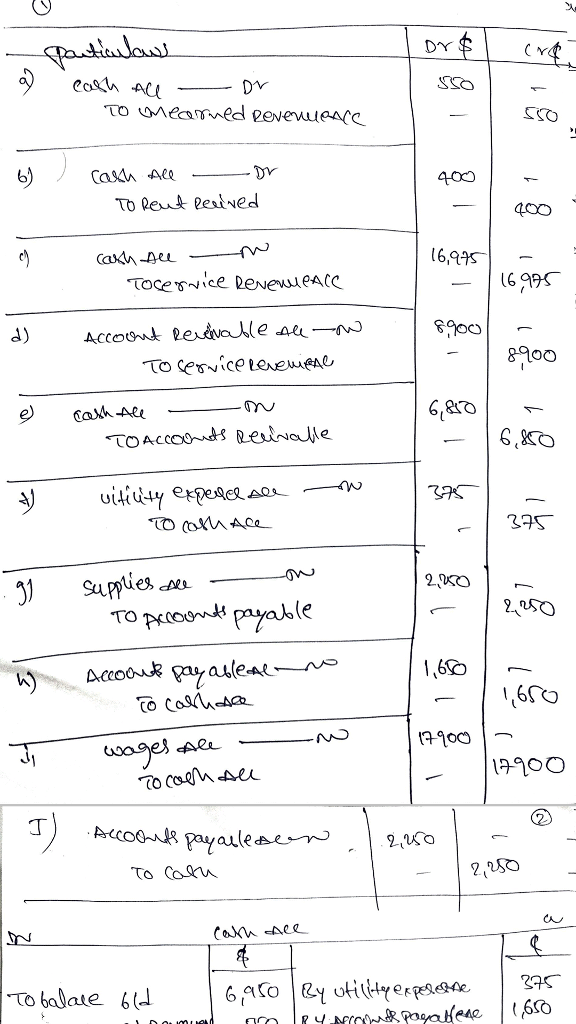 ①
particulars Dr $ Cr $
a) cash Acc —— Dr 550 -
To unearned RevenueAcc — 550
b) Cash Acc —— Dr 400 -
To Rent Received — 400
c) cash Acc —— Dr 16,975 -
To service RevenueAcc — 16,975
d) Account Receivable Acc — Dr 8,900 -
To service Revenue — 8,900
e) cash Acc —— Dr 6,850 -
To Accounts Receivable — 6,850
f) utility expense Acc — Dr 375 —
To cash Acc - 375
g) supplies Acc —— Dr 2,250 -
To Accounts payable — 2,250
h) Accounts payable Ac — Dr 1,650 -
To Cash Acc — 1,650
wages Acc —— Dr 17900 -
To cash Acc — 17900
②
I) Accounts payable Acc Dr 2,250 -
To Cash — 2,250
Dr Cash Acc Cr
$ $
To balance b/d 6,950 By utility expense 375
By Accounts payable Ac 1,650